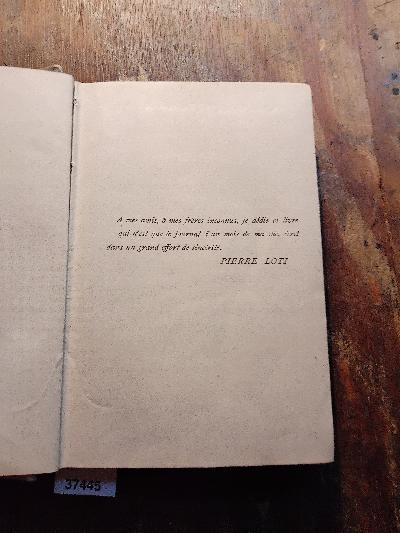 A mes amis, à mes frères inconnus, je dédie ce livre
qui n'est que le journal d'un mois de ma vie, écrit
dans un grand effort de sincérité.
PIERRE LOTI
37445